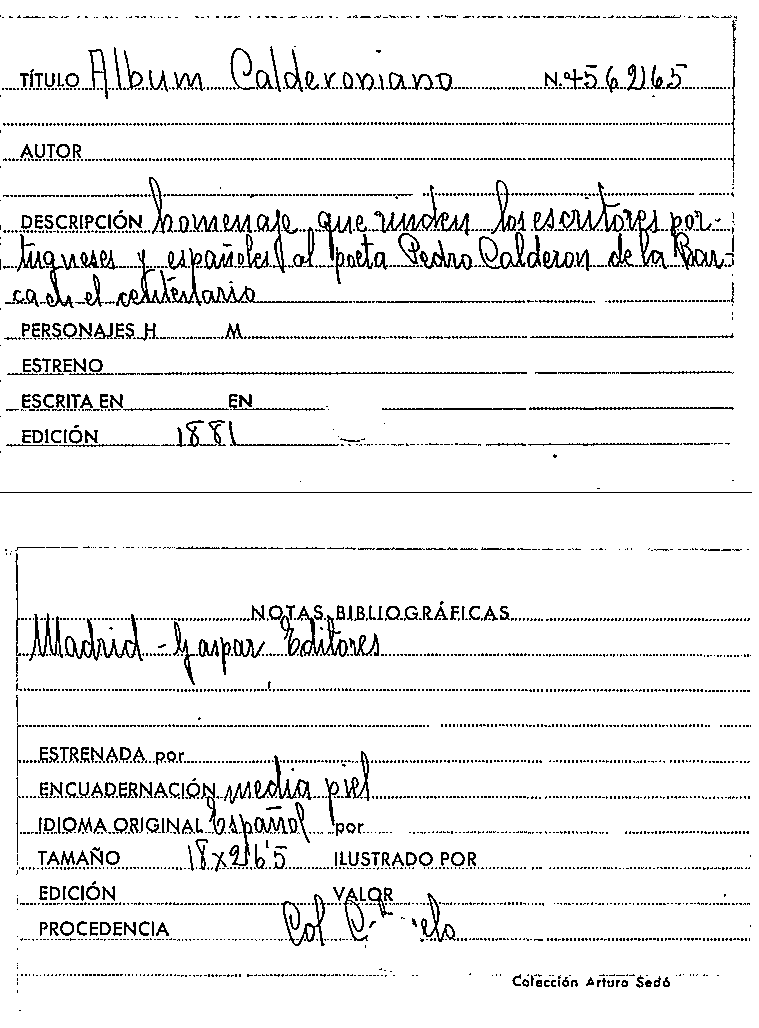 TÍTULO Album Calderoniano N. 4562165
AUTOR
DESCRIPCIÓN homenaje que rinden los escritores por-
tugueses y españoles al poeta Pedro Calderon de la Bar-
ca en el centenario
PERSONAJES H M
ESTRENO
ESCRITA EN EN
EDICIÓN 1881
NOTAS BIBLIOGRÁFICAS
Madrid - Gaspar Editores
ESTRENADA por
ENCUADERNACIÓN media piel
IDIOMA ORIGINAL Español por
TAMAÑO 18x21'5 ILUSTRADO POR
EDICIÓN VALOR
PROCEDENCIA Col
Colección Arturo Sedó